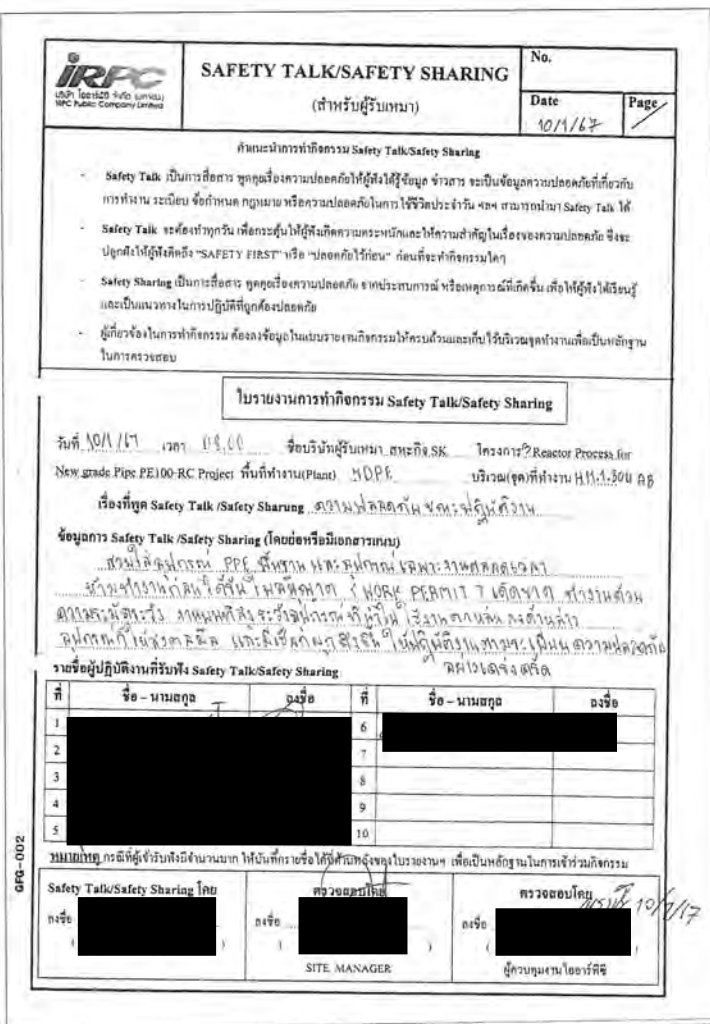 IRPC
บริษัท ไออาร์พีซี จำกัด (มหาชน)
IRPC Public Company Limited
SAFETY TALK/SAFETY SHARING
(สำหรับผู้รับเหมา)
No.
Date
Page
10/1/67
คำแนะนำการทำกิจกรรม Safety Talk/Safety Sharing
- Safety Talk เป็นการสื่อสาร พูดคุยเรื่องความปลอดภัยให้ผู้ฟังได้รู้ข้อมูล ข่าวสาร จะเป็นข้อมูลความปลอดภัยที่เกี่ยวกับ
การทำงาน ระเบียบ ข้อกำหนด กฎหมาย หรือความปลอดภัยในการใช้ชีวิตประจำวัน ฯลฯ สามารถนำมา Safety Talk ได้
- Safety Talk จะต้องทำทุกวัน เพื่อกระตุ้นให้ผู้ฟังเกิดความตระหนักและให้ความสำคัญในเรื่องของความปลอดภัย ซึ่งจะ
ปลูกฝังให้ผู้ฟังคิดถึง "SAFETY FIRST" หรือ "ปลอดภัยไว้ก่อน" ก่อนที่จะทำกิจกรรมใดๆ
- Safety Sharing เป็นการสื่อสาร พูดคุยเรื่องความปลอดภัย จากประสบการณ์ หรือเหตุการณ์ที่เกิดขึ้น เพื่อให้ผู้ฟังได้เรียนรู้
และเป็นแนวทางในการปฏิบัติที่ถูกต้องปลอดภัย
- ผู้เกี่ยวข้องในการทำกิจกรรม ต้องลงข้อมูลในแบบรายงานกิจกรรมให้ครบถ้วนและเก็บไว้บริเวณจุดทำงานเพื่อเป็นหลักฐาน
ในการตรวจสอบ
ใบรายงานการทำกิจกรรม Safety Talk/Safety Sharing
วันที่ 10/1/67 เวลา 08.00 ชื่อบริษัทผู้รับเหมา สหะกิจ.SK โครงการ?Reactor Process for
New grade Pipe PE100-RC Project พื้นที่ทำงาน(Plant) HDPE บริเวณ(จุด)ที่ทำงาน
เรื่องที่พูด Safety Talk /Safety Sharung ความปลอดภัยขณะปฏิบัติงาน
ข้อมูลการ Safety Talk /Safety Sharing (โดยย่อหรือมีเอกสารแนบ)
สวมใส่อุปกรณ์ PPE พื้นฐาน และอุปกรณ์เฉพาะงานตลอดเวลา
ห้ามทำงานก่อนได้รับใบอนุญาต WORK PERMIT เด็ดขาด ทำงานด้วย
ความระมัดระวัง งานบนที่สูงระวังอุปกรณ์ที่ ใช้งานตกหล่นลงด้านล่าง
อุปกรณ์ ให้ปฏิบัติงานตาม ความปลอดภัย
อย่างเคร่งครัด
รายชื่อผู้ปฏิบัติงานที่รับฟัง Safety Talk/Safety Sharing
ที่ ชื่อ – นามสกุล ลงชื่อ ที่ ชื่อ – นามสกุล ลงชื่อ
1 6
2 7
3 8
4 9
5 10
หมายเหตุ กรณีที่ผู้เข้ารับฟังมีจำนวนมาก ให้บันทึกรายชื่อได้ที่ด้านหลังของใบรายงานฯ เพื่อเป็นหลักฐานในการเข้าร่วมกิจกรรม
GFG-002
Safety Talk/Safety Sharing โดย ตรวจสอบโดย ตรวจสอบโดย
10/1/67
ลงชื่อ ลงชื่อ ลงชื่อ
( ) ( ) ( )
SITE MANAGER ผู้ควบคุมงานไออาร์พีซี